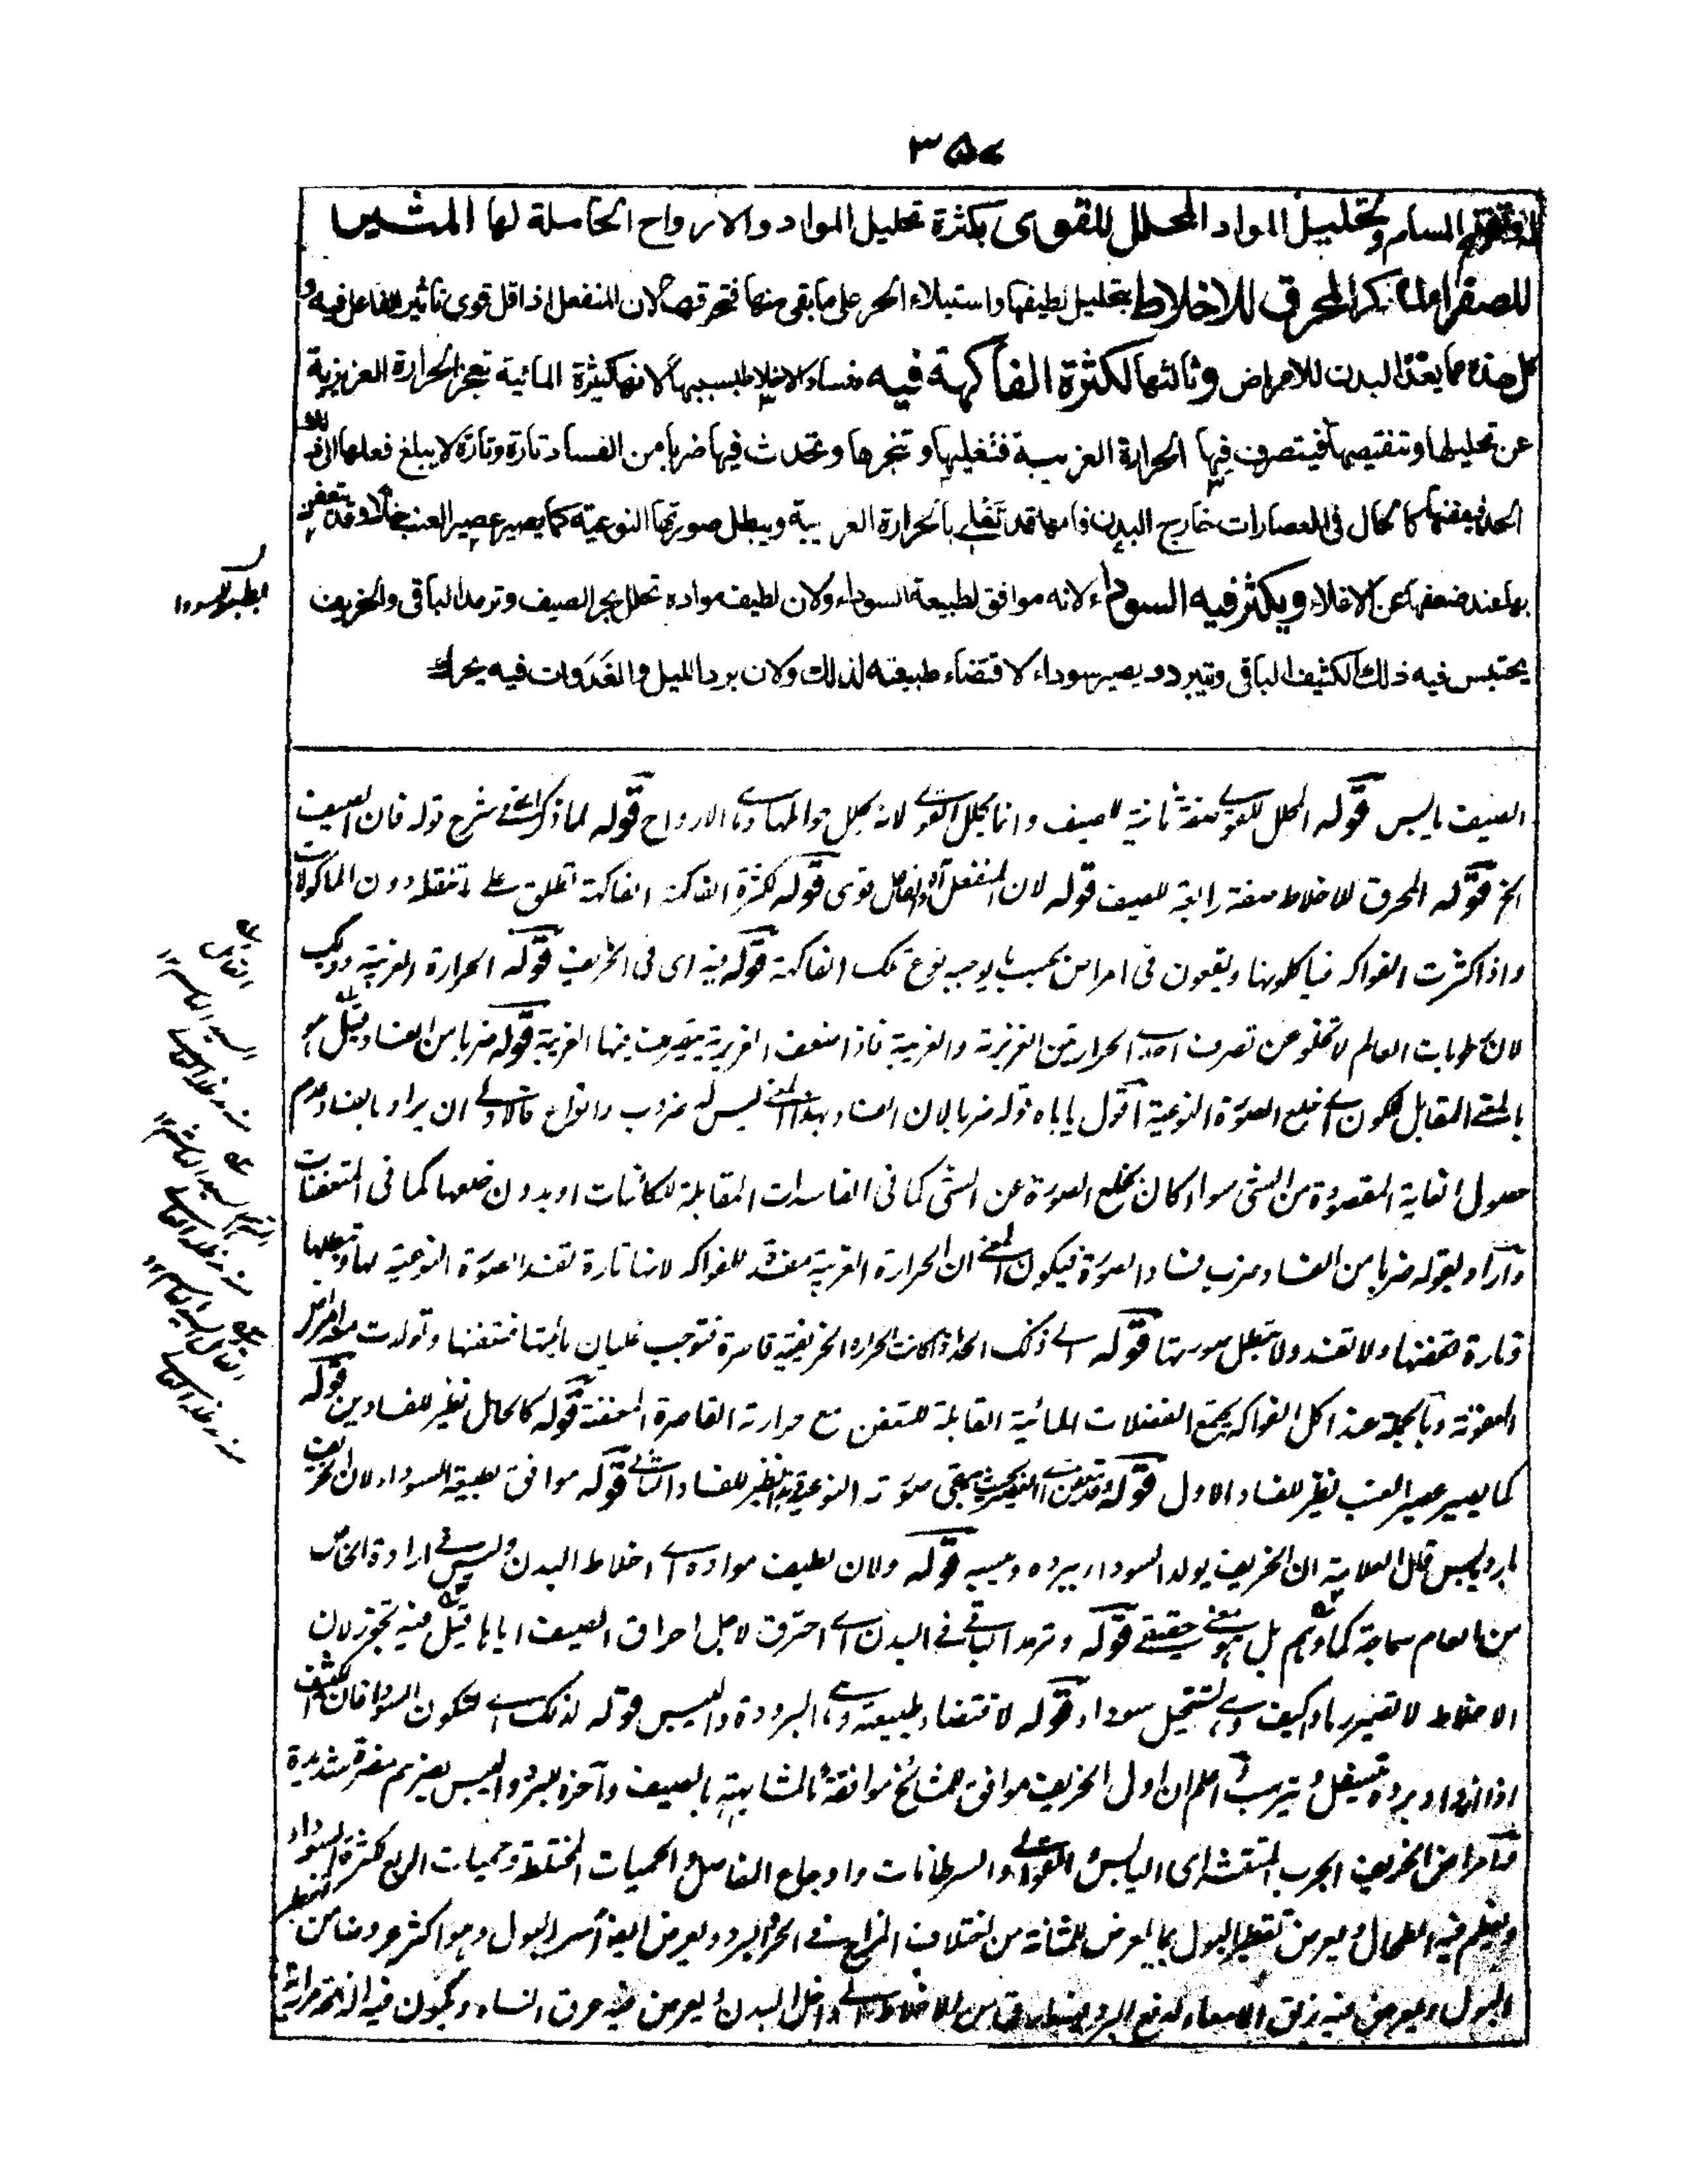 ٣٥٧
المسام وتحليل المواد المحلل للقوى بكثرة تحليل المواد والارواح الحاملة لها المثير
للصفراء لما ذكر المحرق للاخلاط بتحليل لطيفها واستيلاء الحر على ما بقى منها فتحرقها لان المنفعل اذا قل قوى تاثير الفاعل فيه و
كل هذه مما يعد البدن للامراض وثالثها لكثرة الفاكهة فيه وفساد الاخلاط بسببها لانها كثيرة المائية تعجز الحرارة الغريزية
عن تحليلها وتنقيصها فيتصرف فيها الحرارة الغريبة فتغليها وتبخرها وتحدث فيها ضربا من الفساد تارة وتارة لا يبلغ فعلها الى ذلك
الحد فيعفنها كالحال فى العصارات خارج البدن فانها قد تغلى بالحرارة الغريبة ويبطل صورتها النوعية كما يصير عصير العنب خلا وقد يتعفن
بها عند ضعفها عن الاغلاء ويكثر فيه السوداء لانه موافق لطبيعة السوداء ولان لطيف مواده تحلل بحر الصيف وترمد الباقى والخريف
يحتبس فيه ذلك الكثيف الباقى ويتبرد ويصير سوداء لاقتضاء طبيعته لذلك ولان برد الليل والغدوات فيه يحرك
الصيف يابس قوله المحلل للقوى صفة ثانية للصيف وانما يحلل القوى لانه يحلل حواملها وهى الارواح قوله لما ذكر اى فى شرح قوله فان الصيف
الخ قوله المحرق للاخلاط صفة رابعة للصيف قوله لان المنفعل قوى قوله لكثرة الفاكهة الفاكهة تطلق على دون الماكولات
واذا كثرت الفواكه فياكلونها ويقعون فى امراض بحسب ما يوجبه نوع تلك الفاكهة قوله فيه اى فى الخريف قوله الحرارة الغريبة وذلك
لان رطوبات العالم لا تخلو عن تصرف احدى الحرارتين الغريزية والغريبة فاذا ضعف الغريزية يتصرف فيها الغريبة قوله ضربا من الفساد قيل هو
بالمعنى المقابل للكون اى خلع الصورة النوعية اقول ياباه قوله ضربا لان الفساد بهذا المعنى ليس له ضروب وانواع فالاولى ان يراد بالفساد عدم
حصول الغاية المقصودة من الشئ سواء كان بخلع الصورة عن الشئ كما فى الفاسدات المقابلة للكائنات او بدون خلعها كما فى المتعفنات
واراد بقوله ضربا من الفساد ضرب فساد الصورة فيكون المعنى ان الحرارة الغريبة مفسدة للفواكه لانها تارة تفسد الصورة النوعية لها وتبطلها
وتارة تعفنها ولا تفسد ولا تبطل صورتها قوله الى ذلك الحد اذا كانت الحرارة الخريفية قاصرة فتوجب غليان مائيتها فتعفنها وتولدت منه امراض
العفونة وبالجملة عند اكل الفواكه يجتمع الفضلات المائية القابلة للتعفن مع حرارته القاصرة المعفنة قوله كالحال نظير للفسادين قوله
كما يصير عصير العنب نظير للفساد الاول قوله وقد يتعفن بحيث يبقى صورته النوعية نظير للفساد الثانى قوله موافق لطبيعة السوداء لان الخريف
بارد يابس قال العلامة ان الخريف يولد السوداء ببرده ويبسه قوله ولان لطيف مواده اى اخلاط البدن وليس فى ارادة الخاص
من العام سماجة كما وهم بل هو معنى حقيقى قوله وترمد الباقى فى البدن اى احترق لاجل احراق الصيف اياها قيل فيه تجوز لان
الاخلاط لا تصير رمادا كيف وهى تستحيل سوداء قوله لاقتضاء طبيعته وهى البرودة واليبس قوله لذلك اى لتكون السوداء فان الكثيف
اذا ازداد برده تسفل ويترسب اعلم ان اول الخريف موافق للمشائخ موافقة بالمشابهة بالصيف وآخره للبرد واليبس يضرهم مضرة شديدة
وامراض الخريف الجرب المتقشر اى اليابس والقوابى والسرطانات واوجاع المفاصل والحميات المختلطة وحميات الربع لكثرة السوداء
ويعظم فيه الطحال ويعرض تقطير البول بما يعرض للمثانة من اختلاف المزاج فى الحر والبرد ويعرض ايضا أسر البول وهو اكثر عروضا من
البول ويعرض فيه زلق الامعاء لدفع البرد الاخلاط الى داخل البدن ويعرض فيه عرق النساء وتكون فيه الذبحة